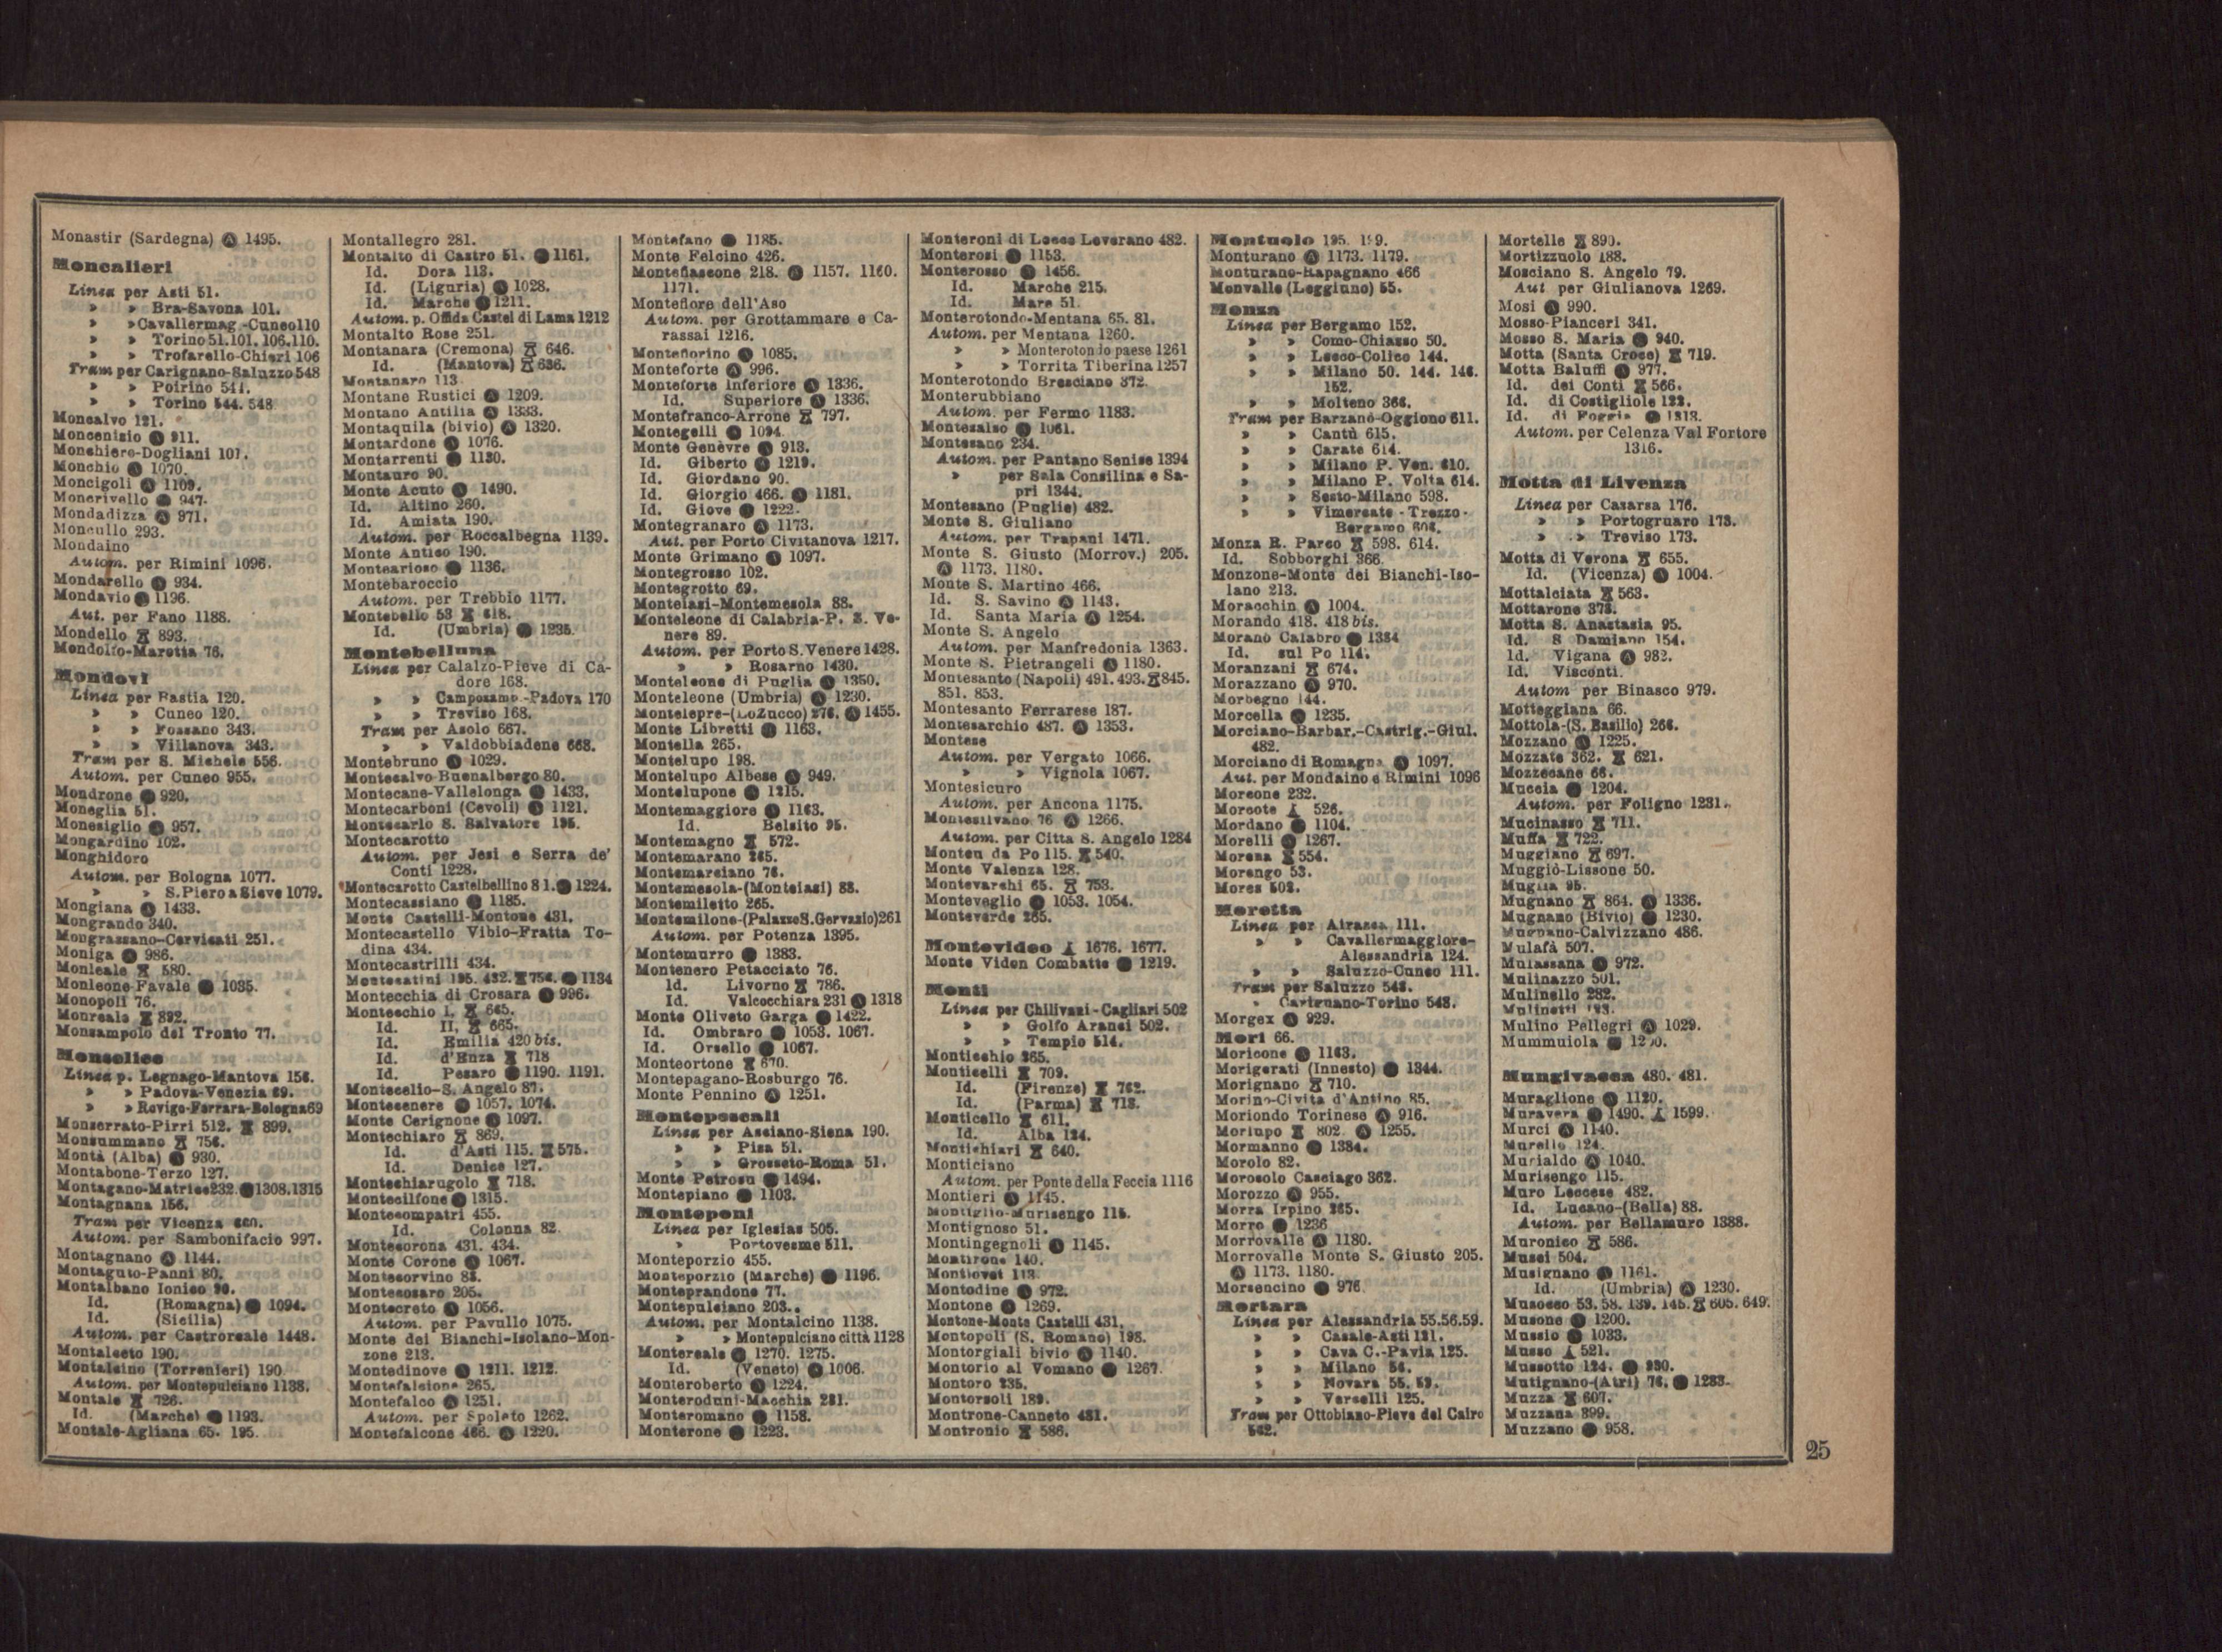 Monastir (Sardegna) Ⓐ 1495.
Moncalieri
Linea per Asti 51.
» » Bra-Savona 101.
» » Cavallermag.-Cuneo 110
» » Torino 51. 101. 106. 110.
» » Trofarello-Chieri 106
Tram per Carignano-Saluzzo 548
» » Poirino 541.
» » Torino 544. 548
Moncalvo 121.
Moncenisio Ⓐ 911.
Monchiero-Dogliani 101.
Monchio Ⓐ 1070.
Moncigoli Ⓐ 1109.
Moncrivello Ⓐ 947.
Mondadizza Ⓐ 971.
Moncullo 293.
Mondaino
Autom. per Rimini 1096.
Mondarello Ⓐ 934.
Mondavio Ⓐ 1196.
Aut. per Fano 1188.
Mondello 893.
Mondolfo-Marotta 76.
Mondovì
Linea per Bastia 120.
» » Cuneo 120.
» » Fossano 343.
» » Villanova 343.
Tram per S. Michele 556.
Autom. per Cuneo 955.
Mondrone Ⓐ 920.
Moneglia 51.
Monesiglio Ⓐ 957.
Mongardino 102.
Monghidoro
Autom. per Bologna 1077.
» » S. Piero a Sieve 1079.
Mongiana Ⓐ 1433.
Mongrando 340.
Mongrassano-Cervicati 251.
Moniga Ⓐ 986.
Monleale 580.
Monleone-Favale Ⓐ 1035.
Monopoli 76.
Monreale 892.
Monsampolo del Tronto 77.
Monselice
Linea p. Legnago-Mantova 156.
» » Padova-Venezia 69.
» » Rovigo-Ferrara-Bologna 69
Monserrato-Pirri 512. 899.
Monsummano 756.
Montà (Alba) Ⓐ 930.
Montabone-Terzo 127.
Montagano-Matrice 232. Ⓐ 1308. 1315
Montagnana 156.
Tram per Vicenza
Autom. per Sambonifacio 997.
Montagnano Ⓐ 1144.
Montaguto-Panni 80.
Montalbano Ionico
Id. (Romagna) Ⓐ 1094.
Id. (Sicilia)
Autom. per Castroreale 1448.
Montalceto 190.
Montalcino (Torrenieri) 190
Autom. per Montepulciano 1138.
Montale 726.
Id. (Marche) Ⓐ 1193.
Montale-Agliana 65. 195.
Montallegro 281.
Montalto di Castro 51. Ⓐ 1161.
Id. Dora 113.
Id. (Liguria) Ⓐ 1028.
Id. Marche Ⓐ 1211.
Autom. p. Offida Castel di Lama 1212
Montalto Rose 251.
Montanara (Cremona) 646.
Id. (Mantova) 636.
Montanaro 113
Montane Rustici Ⓐ 1209.
Montano Antilia Ⓐ 1333.
Montaquila (bivio) Ⓐ 1320.
Montardone Ⓐ 1076.
Montarrenti Ⓐ 1130.
Montauro 90.
Monte Acuto Ⓐ 1490.
Id. Altino 260.
Id. Amiata 190.
Autom. per Roccalbegna 1139.
Monte Antico 190.
Montearioso Ⓐ 1136.
Montebaroccio
Autom. per Trebbio 1177.
Montebello 53 618.
Id. (Umbria) Ⓐ 1235.
Montebelluna
Linea per Calalzo-Pieve di Ca-
dore 168.
» » Camposamp.-Padova 170
» » Treviso 168.
Tram per Asolo 667.
» » Valdobbiadene 668.
Montebruno Ⓐ 1029.
Montecalvo-Buonalbergo 80.
Montecane-Vallelonga Ⓐ 1433.
Montecarboni (Cevoli) Ⓐ 1121.
Montecarlo S. Salvatore 195.
Montecarotto
Autom. per Jesi e Serra de'
Conti 1228.
Montecarotto Castelbellino 81. Ⓐ 1224.
Montecassiano Ⓐ 1185.
Monte Castelli-Montone 431.
Montecastello Vibio-Fratta To-
dina 434.
Montecastrilli 434.
Montecatini 195. 432. 756. Ⓐ 1134
Montecchia di Crosara Ⓐ 996.
Montecchio I. 665.
Id. II. 665.
Id. Emilia 420 bis.
Id. d'Enza 718
Id. Pesaro Ⓐ 1190. 1191.
Montecelio-S. Angelo 87.
Montecenere Ⓐ 1057. 1074.
Monte Cerignone Ⓐ 1097.
Montechiaro 869.
Id. d'Asti 115. 575.
Id. Denice 127.
Montechiarugolo 718.
Montecilfone Ⓐ 1315.
Montecompatri 455.
Id. Colonna 82
Montecorona 431. 434.
Monte Corone Ⓐ 1067.
Montecorvino 88.
Montecosaro 205.
Montecreto Ⓐ 1056.
Autom. per Pavullo 1075.
Monte dei Bianchi-Isolano-Mon-
zone 213.
Montedinove Ⓐ 1211. 1212.
Montefalcione 265.
Montefalco Ⓐ 1251.
Autom. per Spoleto 1262.
Montefalcone 466. Ⓐ 1220.
Montefano Ⓐ 1185.
Monte Felcino 426.
Montefiascone 218. Ⓐ 1157. 1160.
1171.
Montefiore dell'Aso
Autom. per Grottammare e Ca-
rassai 1216.
Montefiorino Ⓐ 1085.
Monteforte Ⓐ 996.
Monteforte Inferiore Ⓐ 1336.
Id. Superiore Ⓐ 1336.
Montefranco-Arrone 797.
Montegelli Ⓐ 1094.
Monte Genèvre Ⓐ 913.
Id. Giberto Ⓐ 1219.
Id. Giordano 90.
Id. Giorgio 466. Ⓐ 1181.
Id. Giove Ⓐ 1222.
Montegranaro Ⓐ 1173.
Aut. per Porto Civitanova 1217.
Monte Grimano Ⓐ 1097.
Montegrosso 102.
Montegrotto 69.
Monteiasi-Montemesola 88.
Monteleone di Calabria-P. S. Ve-
nere 89.
Autom. per Porto S. Venere 1428.
» » Rosarno 1430.
Monteleone di Puglia Ⓐ 1350.
Monteleone (Umbria) Ⓐ 1230.
Montelepre-(Lo Zucco) 276. Ⓐ 1455.
Monte Libretti Ⓐ 1163.
Montella 265.
Montelupo 198.
Montelupo Albese Ⓐ 949.
Montelupone Ⓐ 1215.
Montemaggiore Ⓐ 1163.
Id. Belsito 95.
Montemagno 572.
Montemarano 265.
Montemarciano 76.
Montemesola-(Monteiasi) 88.
Montemiletto 265.
Montemilone-(Palazzo S. Gervasio) 261
Autom. per Potenza 1395.
Montemurro Ⓐ 1383.
Montenero Petacciato 76.
Id. Livorno 786.
Id. Valcocchiara 231 Ⓐ 1318
Monte Oliveto Garga Ⓐ 1422.
Id. Ombraro Ⓐ 1053. 1067.
Id. Orsello Ⓐ 1067.
Monteortone 670.
Montepagano-Rosburgo 76.
Monte Pennino Ⓐ 1251.
Montepescali
Linea per Asciano-Siena 190.
» » Pisa 51.
» » Grosseto-Roma 51.
Monte Petrosu Ⓐ 1494.
Montepiano Ⓐ 1103.
Monteponi
Linea per Iglesias 505.
» Portovesme 511.
Monteporzio 455.
Monteporzio (Marche) Ⓐ 1196.
Monteprandone 77.
Montepulciano 203.
Autom. per Montalcino 1138.
» » Montepulciano città 1128
Montereale Ⓐ 1270. 1275.
Id. (Veneto) Ⓐ 1006.
Monteroberto Ⓐ 1224.
Monteroduni-Macchia 231.
Monteromano Ⓐ 1158.
Monterone Ⓐ 1223.
Monteroni di Lecce Leverano 482.
Monterosi Ⓐ 1153.
Monterosso Ⓐ 1456.
Id. Marche 215.
Id. Mare 51.
Monterotondo-Mentana 65. 81.
Autom. per Mentana 1260.
» » Monterotondo paese 1261
» » Torrita Tiberina 1257
Monterotondo Bresciano 372.
Monterubbiano
Autom. per Fermo 1183.
Montesalso Ⓐ 1061.
Montesano 234.
Autom. per Pantano Senise 1394
» per Sala Consilina e Sa-
pri 1344.
Montesano (Puglie) 482.
Monte S. Giuliano
Autom. per Trapani 1471.
Monte S. Giusto (Morrov.) 205.
Ⓐ 1173. 1180.
Monte S. Martino 466.
Id. S. Savino Ⓐ 1143.
Id. Santa Maria Ⓐ 1254.
Monte S. Angelo
Autom. per Manfredonia 1363.
Monte S. Pietrangeli Ⓐ 1180.
Montesanto (Napoli) 491. 493. 845.
851. 853.
Montesanto Ferrarese 187.
Montesarchio 487. Ⓐ 1353.
Montese
Autom. per Vergato 1066.
» » Vignola 1067.
Montesicuro
Autom. per Ancona 1175.
Montesilvano 76 Ⓐ 1266.
Autom. per Citta S. Angelo 1284
Monteu da Po 115. 540.
Monte Valenza 128.
Montevarchi 65. 753.
Monteveglio Ⓐ 1053. 1054.
Monteverde 265.
Montevideo 1676. 1677.
Monte Vidon Combatte Ⓐ 1219.
Monti
Linea per Chilivani-Cagliari 502
» » Golfo Aranci 502.
» » Tempio 514.
Monticchio 265.
Monticelli 709.
Id. (Firenze) 762.
Id. (Parma) 713.
Monticello 611.
Id. Alba 124.
Montichiari 640.
Monticiano
Autom. per Ponte della Feccia 1116
Montieri Ⓐ 1145.
Montiglio-Murisengo 115.
Montignoso 51.
Montingegnoli Ⓐ 1145.
Montirone 140.
Montjovet 113.
Montodine Ⓐ 972.
Montone Ⓐ 1269.
Montone-Monte Castelli 431.
Montopoli (S. Romano) 198.
Montorgiali bivio Ⓐ 1140.
Montorio al Vomano Ⓐ 1267.
Montoro 235.
Montorsoli 189.
Montrone-Canneto 481.
Montronio 586.
Montuolo 195. 199.
Monturano Ⓐ 1173. 1179.
Monturano-Rapagnano 466
Monvalle (Leggiuno) 55.
Monza
Linea per Bergamo 152.
» » Como-Chiasso 50.
» » Lecco-Colico 144.
» » Milano 50. 144. 146.
152.
» » Molteno 366.
Tram per Barzanò-Oggiono 611.
» » Cantù 615.
» » Carate 614.
» » Milano P. Ven. 610.
» » Milano P. Volta 614.
» » Sesto-Milano 598.
» » Vimercate-Trezzo-
Bergamo 608.
Monza R. Parco 598. 614.
Id. Sobborghi 366.
Monzone-Monte dei Bianchi-Iso-
lano 213.
Moracchin Ⓐ 1004.
Morando 418. 418 bis.
Morano Calabro Ⓐ 1384
Id. sul Po 114.
Moranzani 674.
Morazzano Ⓐ 970.
Morbegno 144.
Morcella Ⓐ 1235.
Morciano-Barbar.-Castrig.-Giul.
482.
Morciano di Romagna Ⓐ 1097.
Aut. per Mondaino e Rimini 1096
Morcone 232.
Morcote 526.
Mordano Ⓐ 1104.
Morelli Ⓐ 1267.
Morena 554.
Morengo 53.
Mores 502.
Moretta
Linea per Airasca 111.
» » Cavallermaggiore-
Alessandria 124.
» » Saluzzo-Cuneo 111.
Tram per Saluzzo 548.
» Carignano-Torino 548.
Morgex Ⓐ 929.
Mori 66.
Moricone Ⓐ 1163.
Morigerati (Innesto) Ⓐ 1344.
Morignano 710.
Morino-Civita d'Antino 85.
Moriondo Torinese Ⓐ 916.
Morlupo 802. Ⓐ 1255.
Mormanno Ⓐ 1384.
Morolo 82.
Morosolo Casciago 362.
Morozzo Ⓐ 955.
Morra Irpino 265.
Morro Ⓐ 1236
Morrovalle Ⓐ 1180.
Morrovalle Monte S. Giusto 205.
Ⓐ 1173. 1180.
Morsencino Ⓐ 976
Mortara
Linea per Alessandria 55. 56. 59.
» » Casale-Asti 121.
» » Cava C.-Pavia 125.
» » Milano 56.
» » Novara 55. 59.
» » Vercelli 125.
Tram per Ottobiano-Pieve del Cairo
562.
Mortelle 890.
Mortizzuolo 188.
Mosciano S. Angelo 79.
Aut per Giulianova 1269.
Mosi Ⓐ 990.
Mosso-Pianceri 341.
Mosso S. Maria Ⓐ 940.
Motta (Santa Croce) 719.
Motta Baluffi Ⓐ 977.
Id. dei Conti 566.
Id. di Costigliole 122.
Id. di Foggia Ⓐ 1313.
Autom. per Celenza Val Fortore
1316.
Motta di Livenza
Linea per Casarsa 176.
» » Portogruaro 173.
» » Treviso 173.
Motta di Verona 655.
Id. (Vicenza) Ⓐ 1004.
Mottalciata 563.
Mottarone 373.
Motta S. Anastasia 95.
Id. S Damiano 154.
Id. Vigana Ⓐ 982.
Id. Visconti.
Autom per Binasco 979.
Motteggiana 66.
Mottola-(S. Basilio) 266.
Mozzano Ⓐ 1225.
Mozzate 362. 621.
Mozzecane 66.
Muccia Ⓐ 1204.
Autom. per Foligno 1231.
Mucinasso 711.
Muffa 722.
Muggiano 697.
Muggiò-Lissone 50.
Muglia 95.
Mugnano 864. Ⓐ 1336.
Mugnano (Bivio) Ⓐ 1230.
Mugnano-Calvizzano 486.
Mulafà 507.
Mulassana Ⓐ 972.
Mulinazzo 501.
Mulinello 282.
Mulinetti
Mulino Pellegri Ⓐ 1029.
Mummuiola Ⓐ
Mungivacca 480. 481.
Muraglione Ⓐ 1120.
Muravera Ⓐ 1490. 1599.
Murci Ⓐ 1140.
Murello 124.
Murialdo Ⓐ 1040.
Murisengo 115.
Muro Leccese 482.
Id. Lucano-(Bella) 88.
Autom. per Bellamuro 1388.
Muronico 586.
Musei 504.
Musignano Ⓐ 1161.
Id. (Umbria) Ⓐ 1230.
Musocco 53. 58. 139. 145. 605. 649.
Musone Ⓐ 1200.
Mussio Ⓐ 1033.
Musso 521.
Mussotto 124. Ⓐ 930.
Mutignano-(Atri) 76. Ⓐ 1283.
Muzza 607.
Muzzana 399.
Muzzano Ⓐ 958.
25